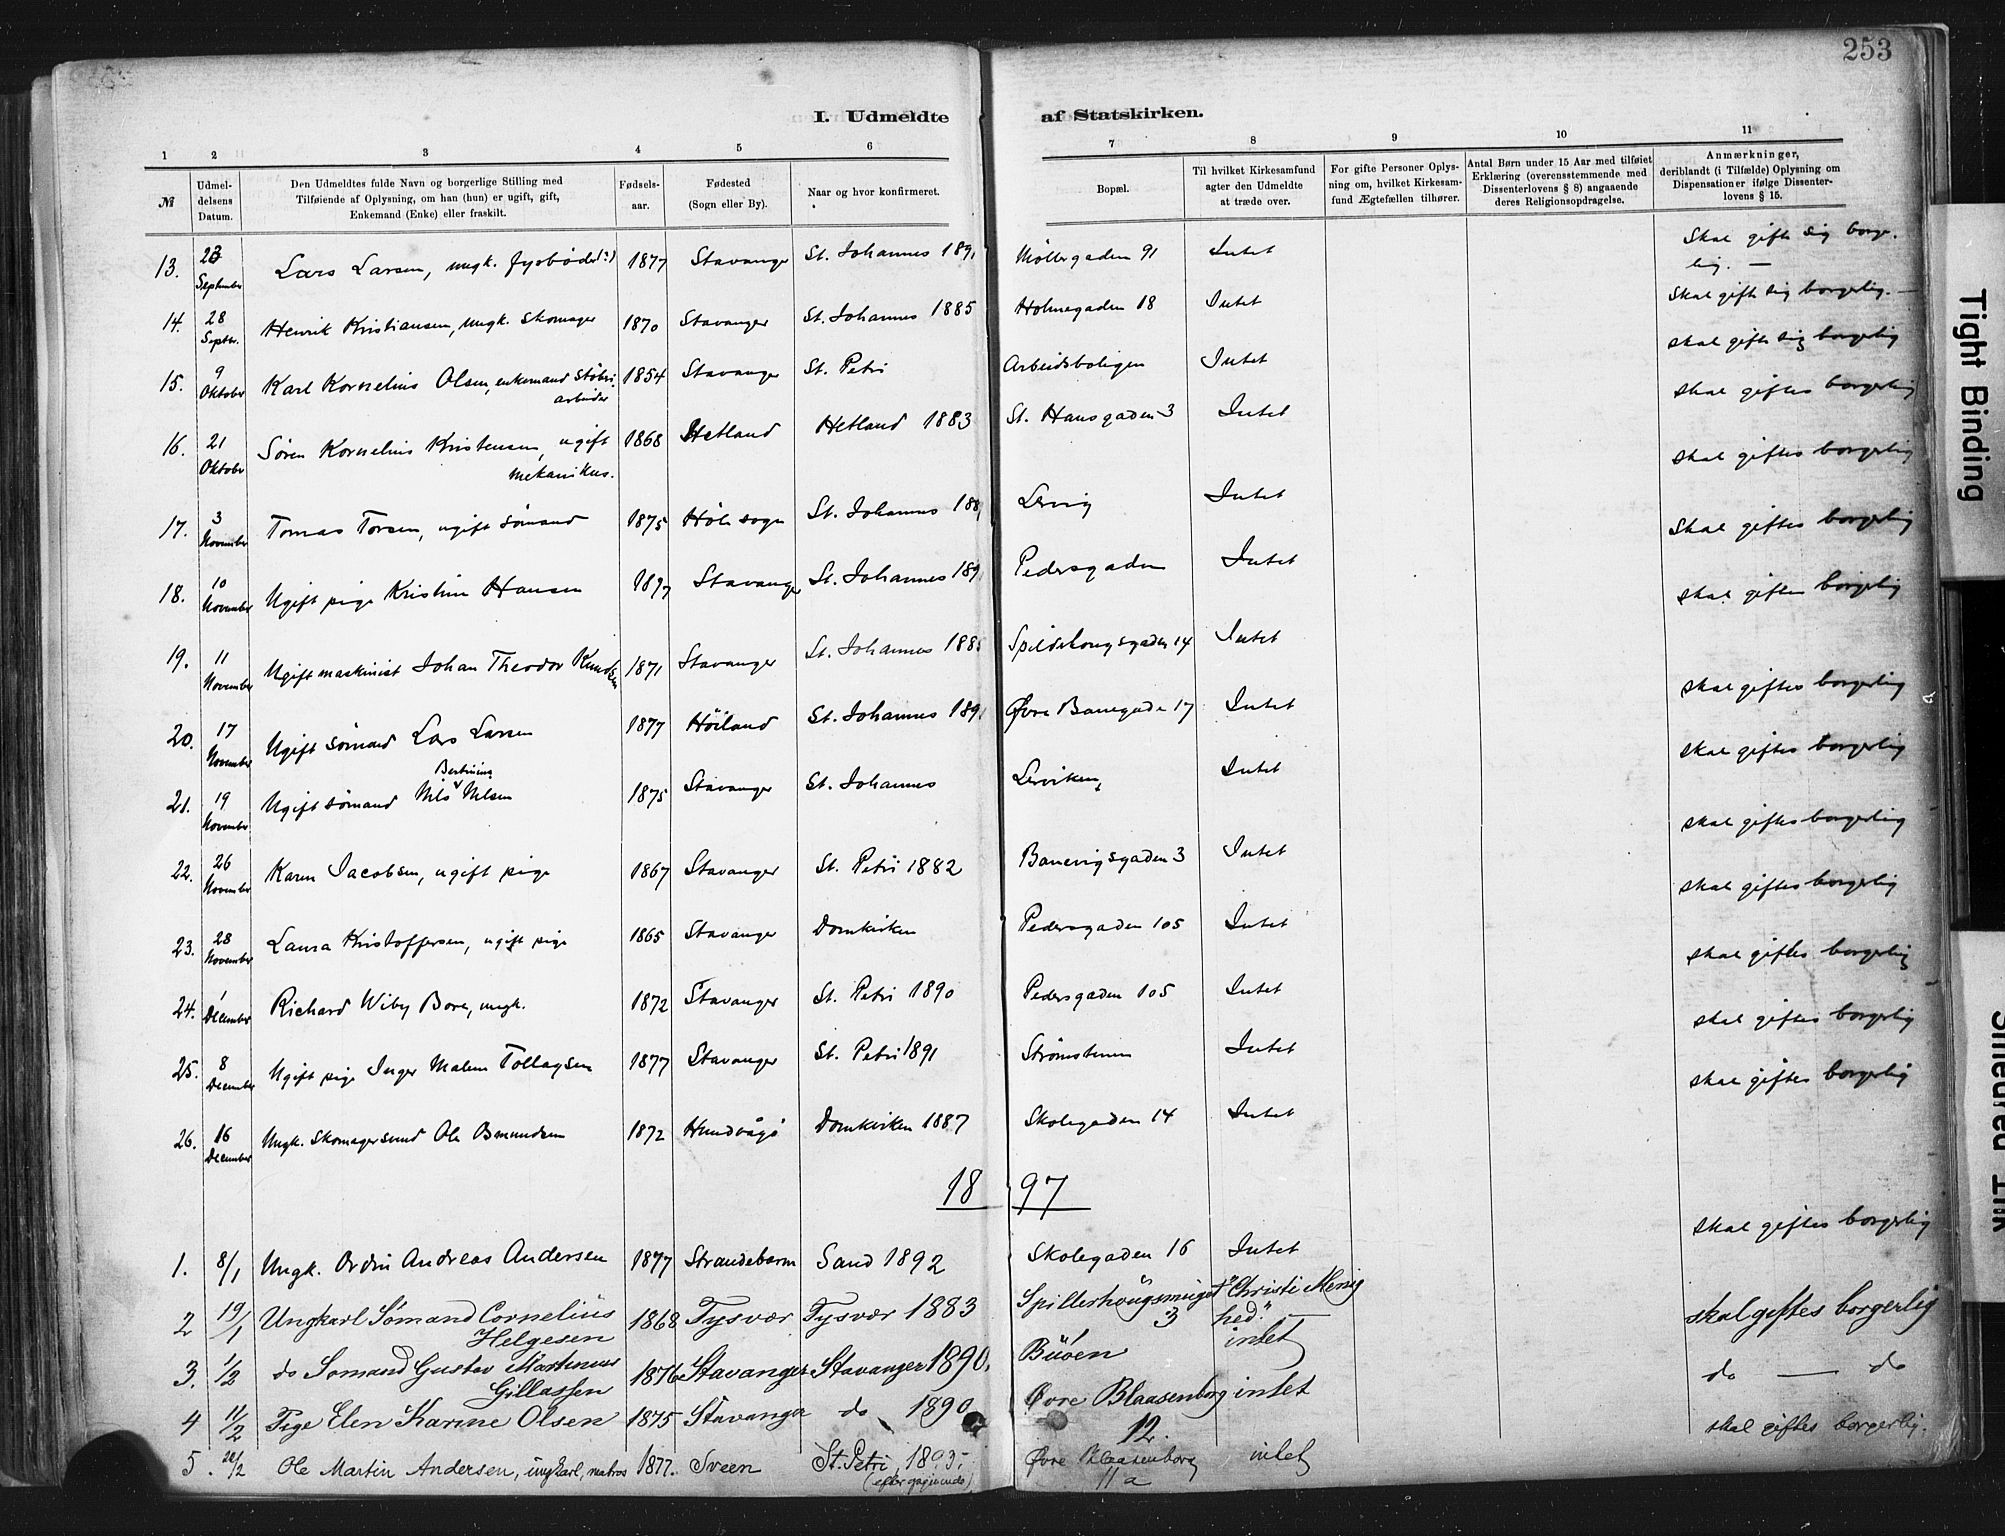 253
I. Udmeldte af Statskirken.
1 2 3 4 5 6 7 8 9 10 11
№
Udmeldelsens Datum.
Den Udmeldtes fulde Navn og borgerlige Stilling med
Tilføiende af Oplysning, om han (hun) er ugift, gift,
Enkemand (Enke) eller fraskilt.
Fødselsaar.
Fødested
(Sogn eller By).
Naar og hvor konfirmeret.
Bopæl.
Til hvilket Kirkesamfund
agter den Udmeldte
at træde over.
For gifte Personer Oplys-
ning om, hvilket Kirkesam-
fund Ægtefællen tilhører.
Antal Børn under 15 Aar med tilføiet
Erklæring (overensstemmende med
Dissenterlovens § 8) angaaende
deres Religionsopdragelse.
Anmærkninger,
deriblandt (i Tilfælde) Oplysning om
Dispensationer ifølge Dissenter-
lovens § 15.
13. September Lars Larsen, ungk. fyrbøder(?) 1877 Stavanger St. Johannes 1891 Møllergaden 91 Intet Skal gifte sig borgerlig. —
14. 28 Septbr. Henrik Kristiansen, ungk. skomager 1870 Stavanger St. Johannes 1885 Holmegaden 18 Intet Skal gifte sig borgerlig. —
15. 9 Oktober Karl Kornelius Olsen, enkemand støberiarbeider 1854 Stavanger St. Petri Arbeidsboligen Intet skal gifte sig borgerlig
16. 21 Oktober Søren Kornelius Kristensen, ugift mekanikus. 1868 Hetland Hetland 1883 St. Hansgaden 3 Intet skal giftes borgerlig
17. 3 November Tomas Torsen, ugift sømand 1875 Høle sogn St. Johannes Lervig Intet skal giftes borgerlig
18. 10 November Ugift pige Kristine Hansen Stavanger St. Johannes 1891 Pedersgaden Intet skal giftes borgerlig
19. 11 November Ugift maskinist Johan Theodor Knudsen 1871 Stavanger St. Johannes 1885 Spilderhougsgaden 14 Intet skal giftes borgerlig
20. 17 November Ugift sømand Lars Larsen 1877 Höiland St. Johannes 1891 Øvre Banegade 17 Intet skal giftes borgerlig
21. 19 November Ugift sømand Nils Bertinius Nilsen 1875 Stavanger St. Johannes Lerviken Intet skal giftes borgerlig
22. 26 November Karen Jacobsen, ugift pige 1867 Stavanger St. Petri 1882 Banevigsgaden 3 Intet skal giftes borgerlig
23. 28 November Laura Kristoffersen, ugift pige 1865 Stavanger Domkirken Pedersgaden 105 Intet skal giftes borgerlig
24. 1 December Richard Wiby Bore, ungk. 1872 Stavanger St. Petri 1890 Pedersgaden 105 Intet skal giftes borgerlig
25. 8 December Ugift pige Inger Malene Tollagsen 1877 Stavanger St. Petri 1891 Strømstenen Intet skal giftes borgerlig
26. 16 December Ungk. skomagersvend Ole Osmundsen 1872 Hundvågö Domkirken 1887 Skolegaden 14 Intet skal giftes borgerlig
1897
1. 8/1 Ungk. Ordin Andreas Andersen 1877 Strandebarm Sand 1892 Skolegaden 16 Intet skal giftes borgerlig
2 19/1 Ungkarl Sømand Cornelius Helgesen 1868 Tysvær Tysvær 1883 Spilderhougsmuget 3 "Christi Menighed" skal giftes borgerlig
3. 1/2 do Sømand Gustav Martinius Gillassen 1876 Stavanger Stavanger 1890. Buöen intet do — do
4 11/2 Pige Elen Karine Olsen 1875 Stavanger do 1890 Øvre Blaasenborg 12. intet skal giftes borgerlig.
5. 20/2 Ole Martin Andersen, ungkarl, matros 1877. Sveen St. Petri, 1893.- (efter opgivende) Øvre Blaasenborg 11a intet
Tight Binding
Smeared Ink